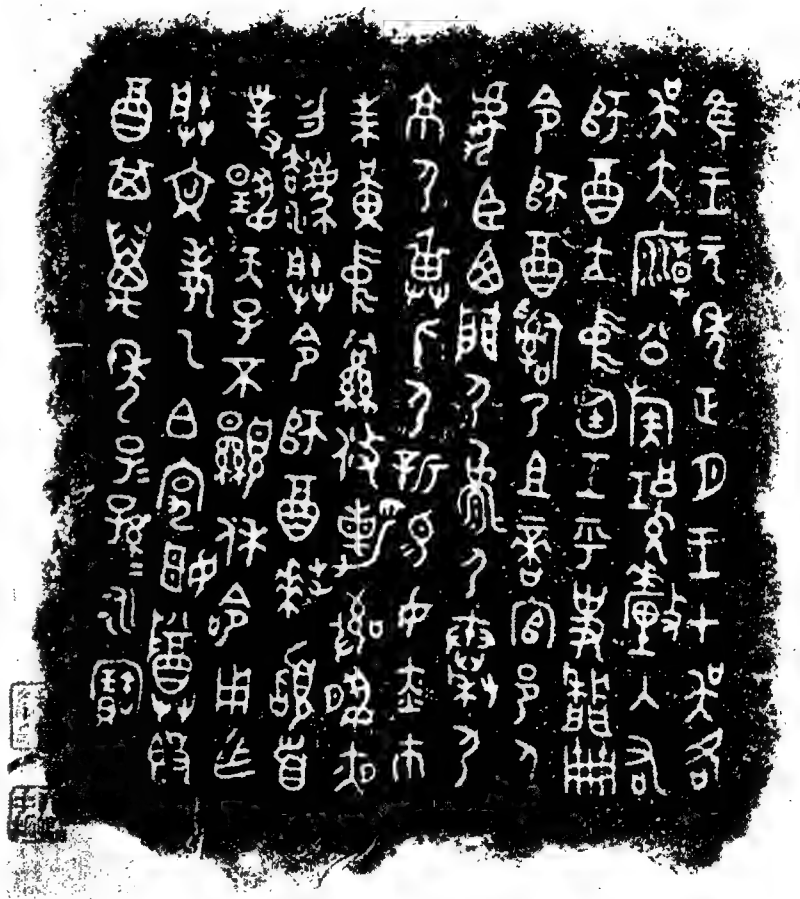 隹王元年正月王才吳各
吳大廟公族𤔲釐入右
師酉立中廷王乎史牆冊
令師酉𤔲乃且啻官邑人
虎臣西門尸尸秦尸
京尸身尸新易女赤巿
朱黃中䋣攸勒敬夙夜
勿灋朕令師酉拜𩒨首
對揚天子不顯休令用乍
朕文考乙白宄姬𨻰𣪘
酉其萬年子=孫=永寶